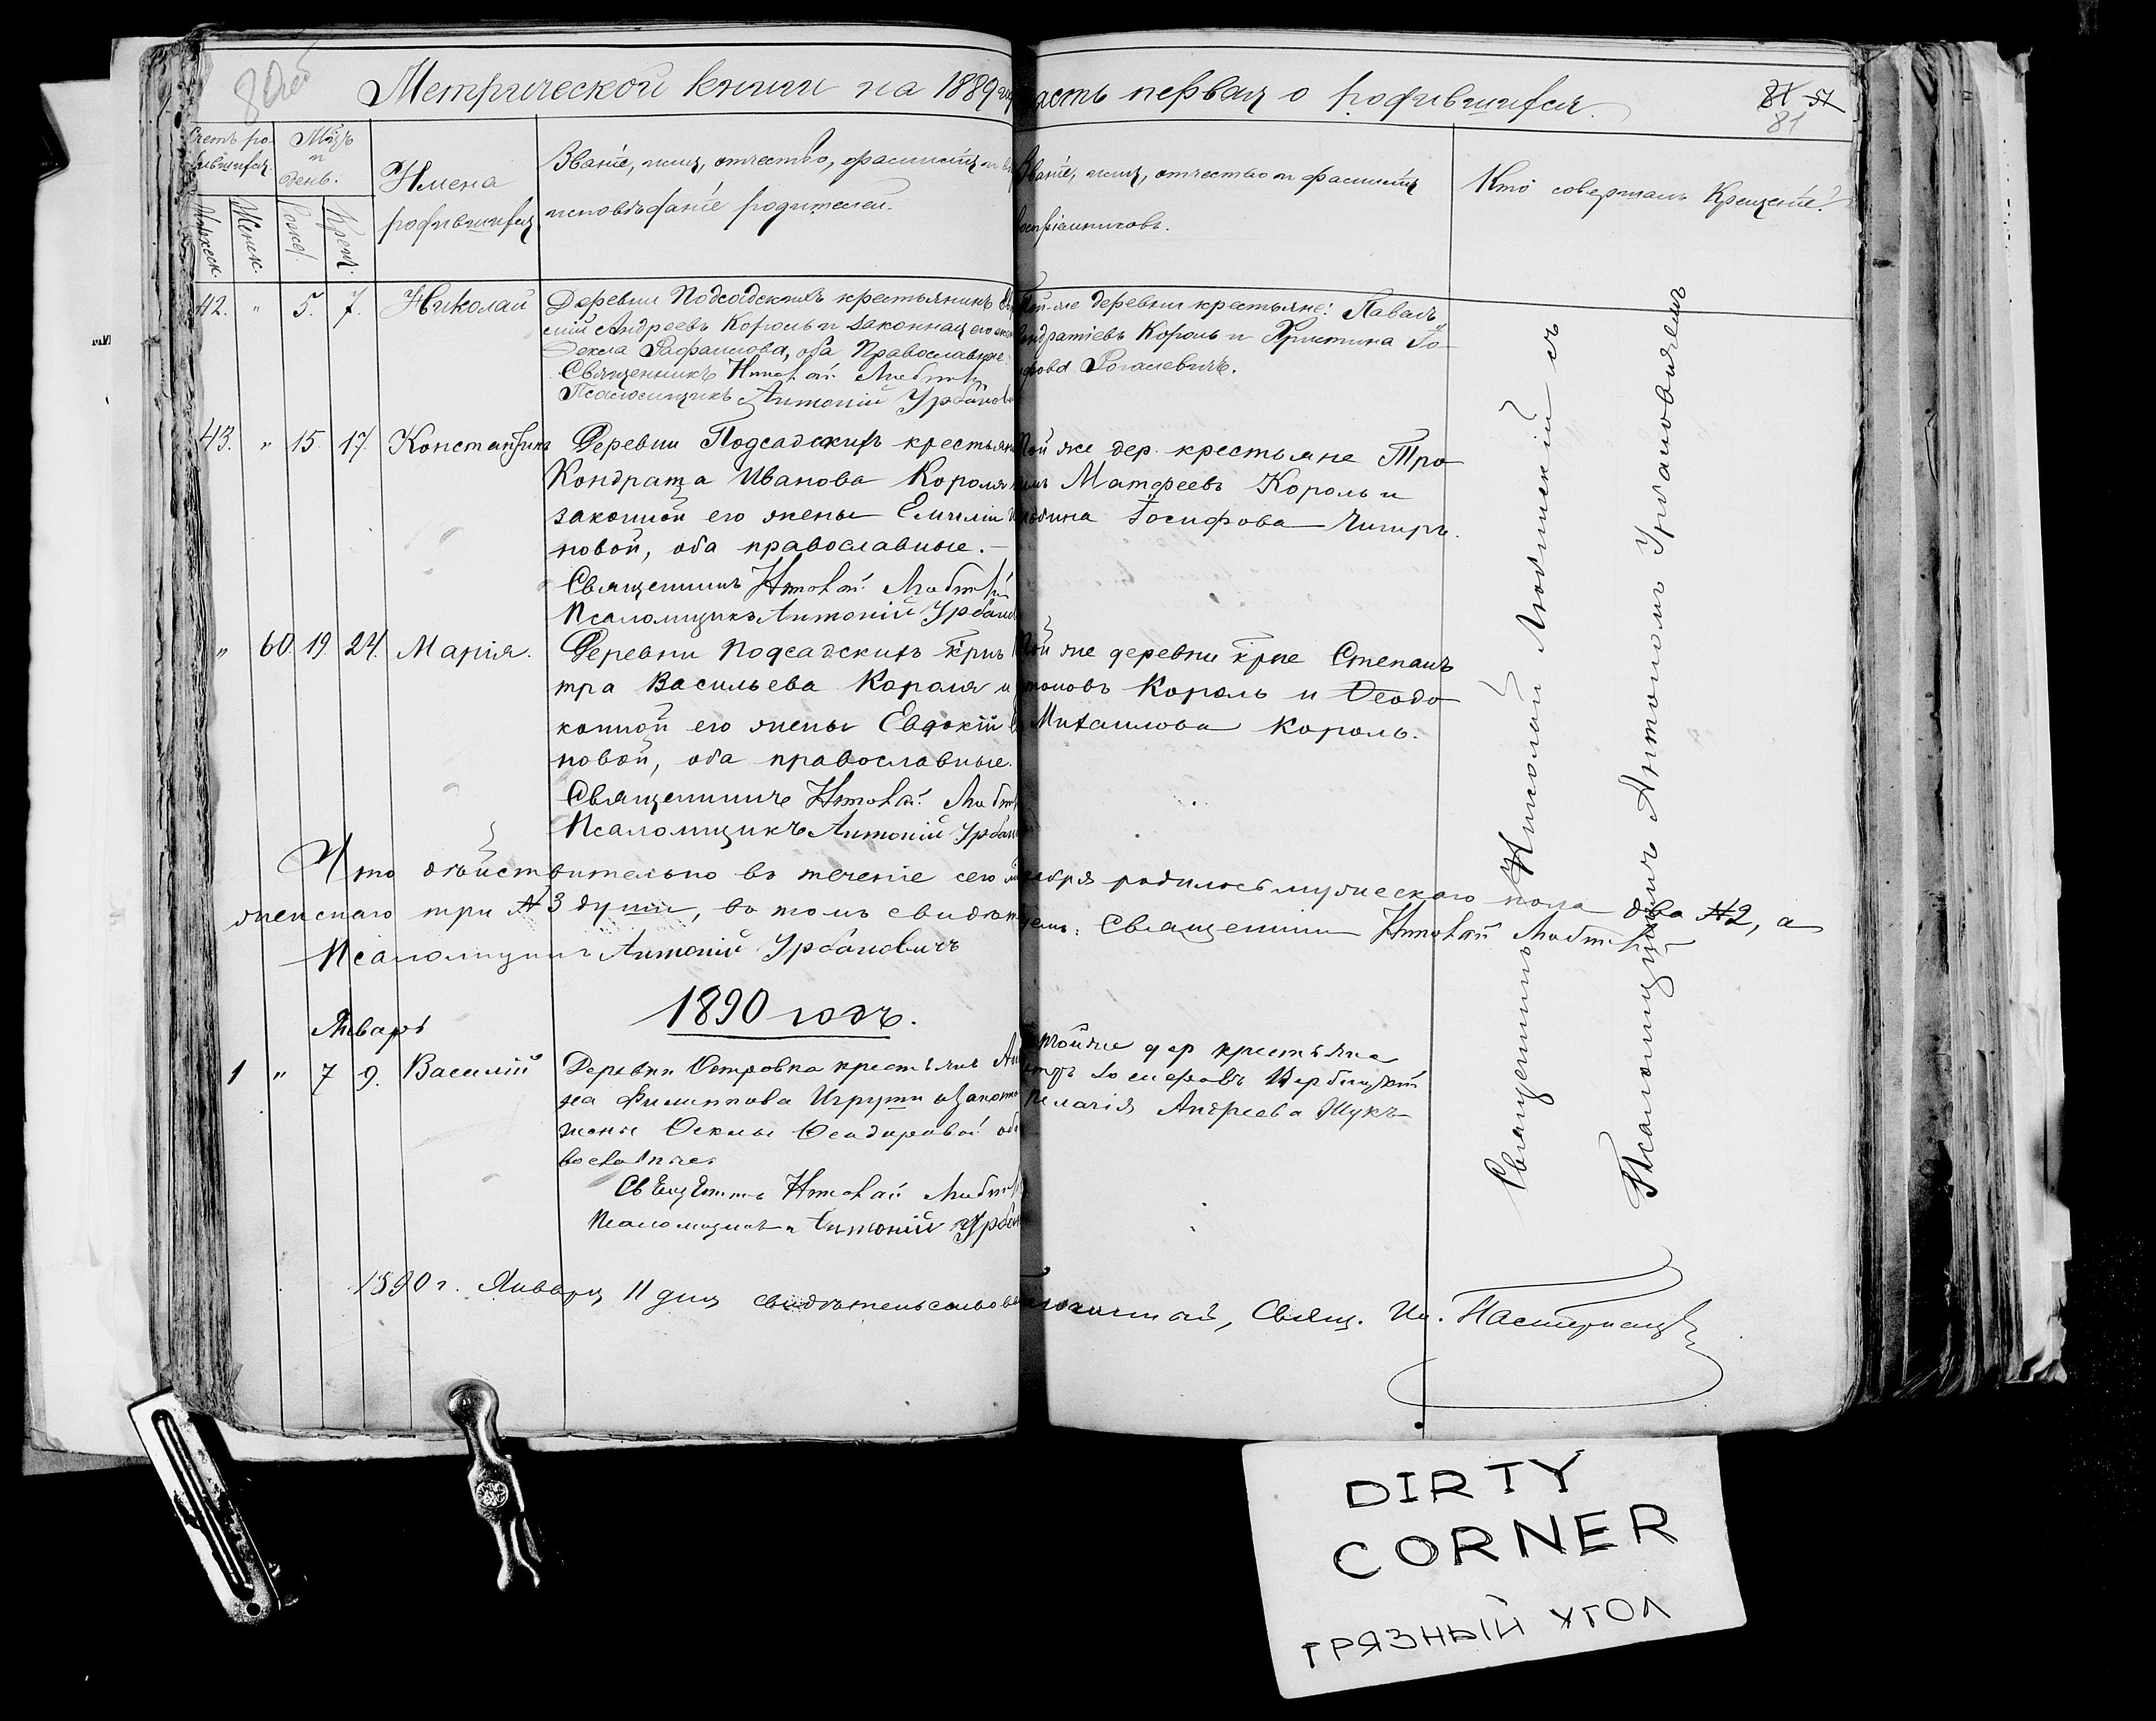 80об
Метрической книги на 1889 го
асть первая о родившихся.
81 51
81
Счетъ ро-
дившихся.
Мѣсяцъ
и
день.
Имена
родившихся
Званіе, имя, отчество, фамилія и
исповѣданіе родителей.
Званіе, имя, отчество и фамилія
воспріемниковъ.
Кто совершалъ Крещеніе?
Мужеск.
Женск.
Рожд.
Крещ.
42. " 5. 7. Николай Деревни Подсадскихъ крестьянинъ
Андреевъ Король и законная его
Ѳекла Рафаилова, оба Православные
Священникъ Николай
Псаломщикъ Антоній Урбанов
Той-же деревни крестьяне: Павелъ
ндратіевъ Король и Христина Іо-
сифова Рогалевичъ.
43. " 15. 17. Константинъ Деревни Подсадскихъ крестьян
Кондрата Иванова Короля
законной его жены Емиліи
новой, оба православные.—
Священникъ Николай
Псаломщикъ Антоній Урбан
Той же дер. крестьяне Тро
Матѳеевъ Король и
Іосифова Чигиръ.
" 60. 19. 24. Марія. Деревни Подсадскихъ крнъ
тра Васильева Короля и
конной его жены Евдокіи
новой, оба православные.
Священникъ Николай
Псаломщикъ Антоній Урбан
Той же деревни крне Степанъ
тоновъ Король и Ѳеодо
Михаилова Король.
Что дѣйствительно въ теченіе сего кабря родилось мужескаго пола два №2, а
женскаго три №3 души, въ томъ свидѣтел Священникъ Николай
Псаломщикъ Антоній Урбановичъ
1890 годъ.
Январь
1 " 7 9. Василій Деревни Островка крестьян
на Филиппова Игруши и законно
жены Ѳеклы Ѳеодоровой
вославные
Священникъ Николай
Псаломщикъ Антоній Урбан
той же дер крестьяне
Іосифовъ Вербицкій
Пелагія Андреева Жукъ
1890 г. Января 11 дня свидѣтельствовал
Благочинный, Свящ. Ив. Пастернацкій
Священникъ Николай Любинскій съ
Псаломщикомъ Антономъ Урбановичемъ
DIRTY
CORNER
ГРЯЗНЫЙ УГОЛ